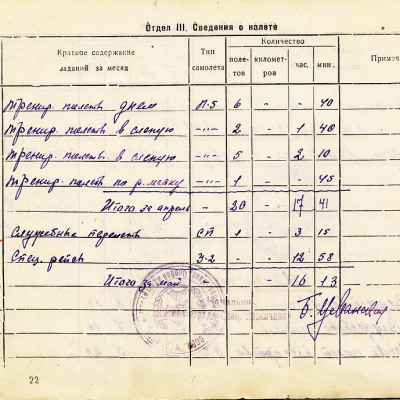 Отдел III. Сведения о налете
Краткое содержание заданий за месяц
Тип самолета
Количество
поле-тов
километ-ров
час.
мин.
Примеча
Тренир. полеты днем П-5 6 - - 40
Тренир. полеты в слепую -"- 2 - 1 40
Тренир. полеты. в слепую -"- 5 - 2 10
Тренир. полет по р. маяку -"- 1 - - 45
Итого за апрель - 20 - 17 41
Служебные перелеты СП 1 - 3 15
Спец. рейсы У-2 - - 12 58
Итого за май - - 16 13
Начальник
22